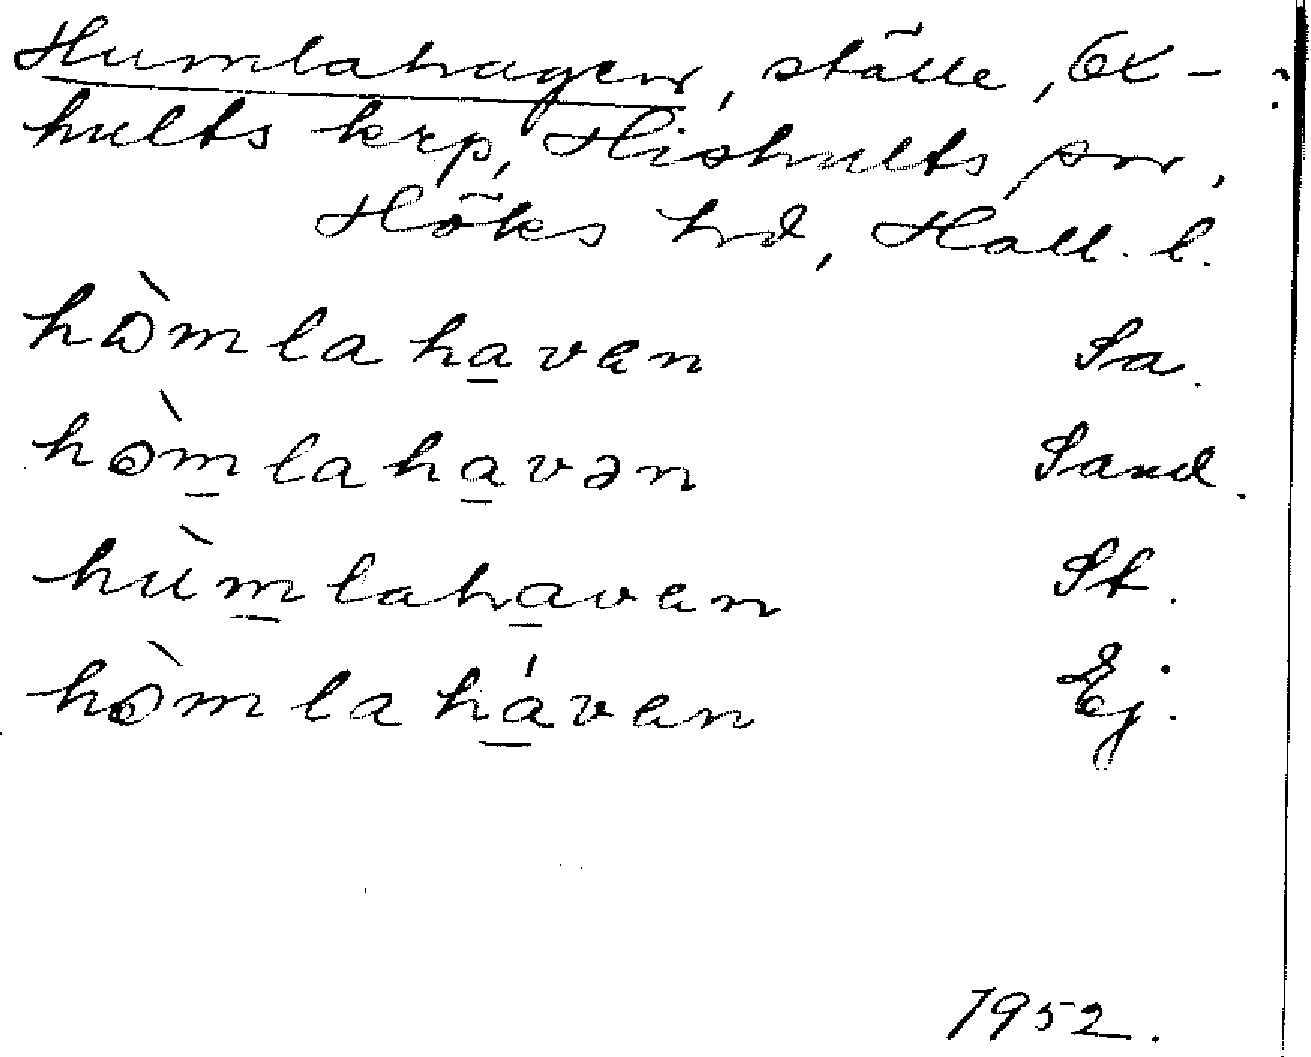 Humlahagen, ställe, Ox-
hults krp, Hishults sn,
Höks hd, Hall. l.
hòmlahavan Sa.
hòmlahavən Sand.
hùmlahavan St.
hòmlahávan Ej.
1952.